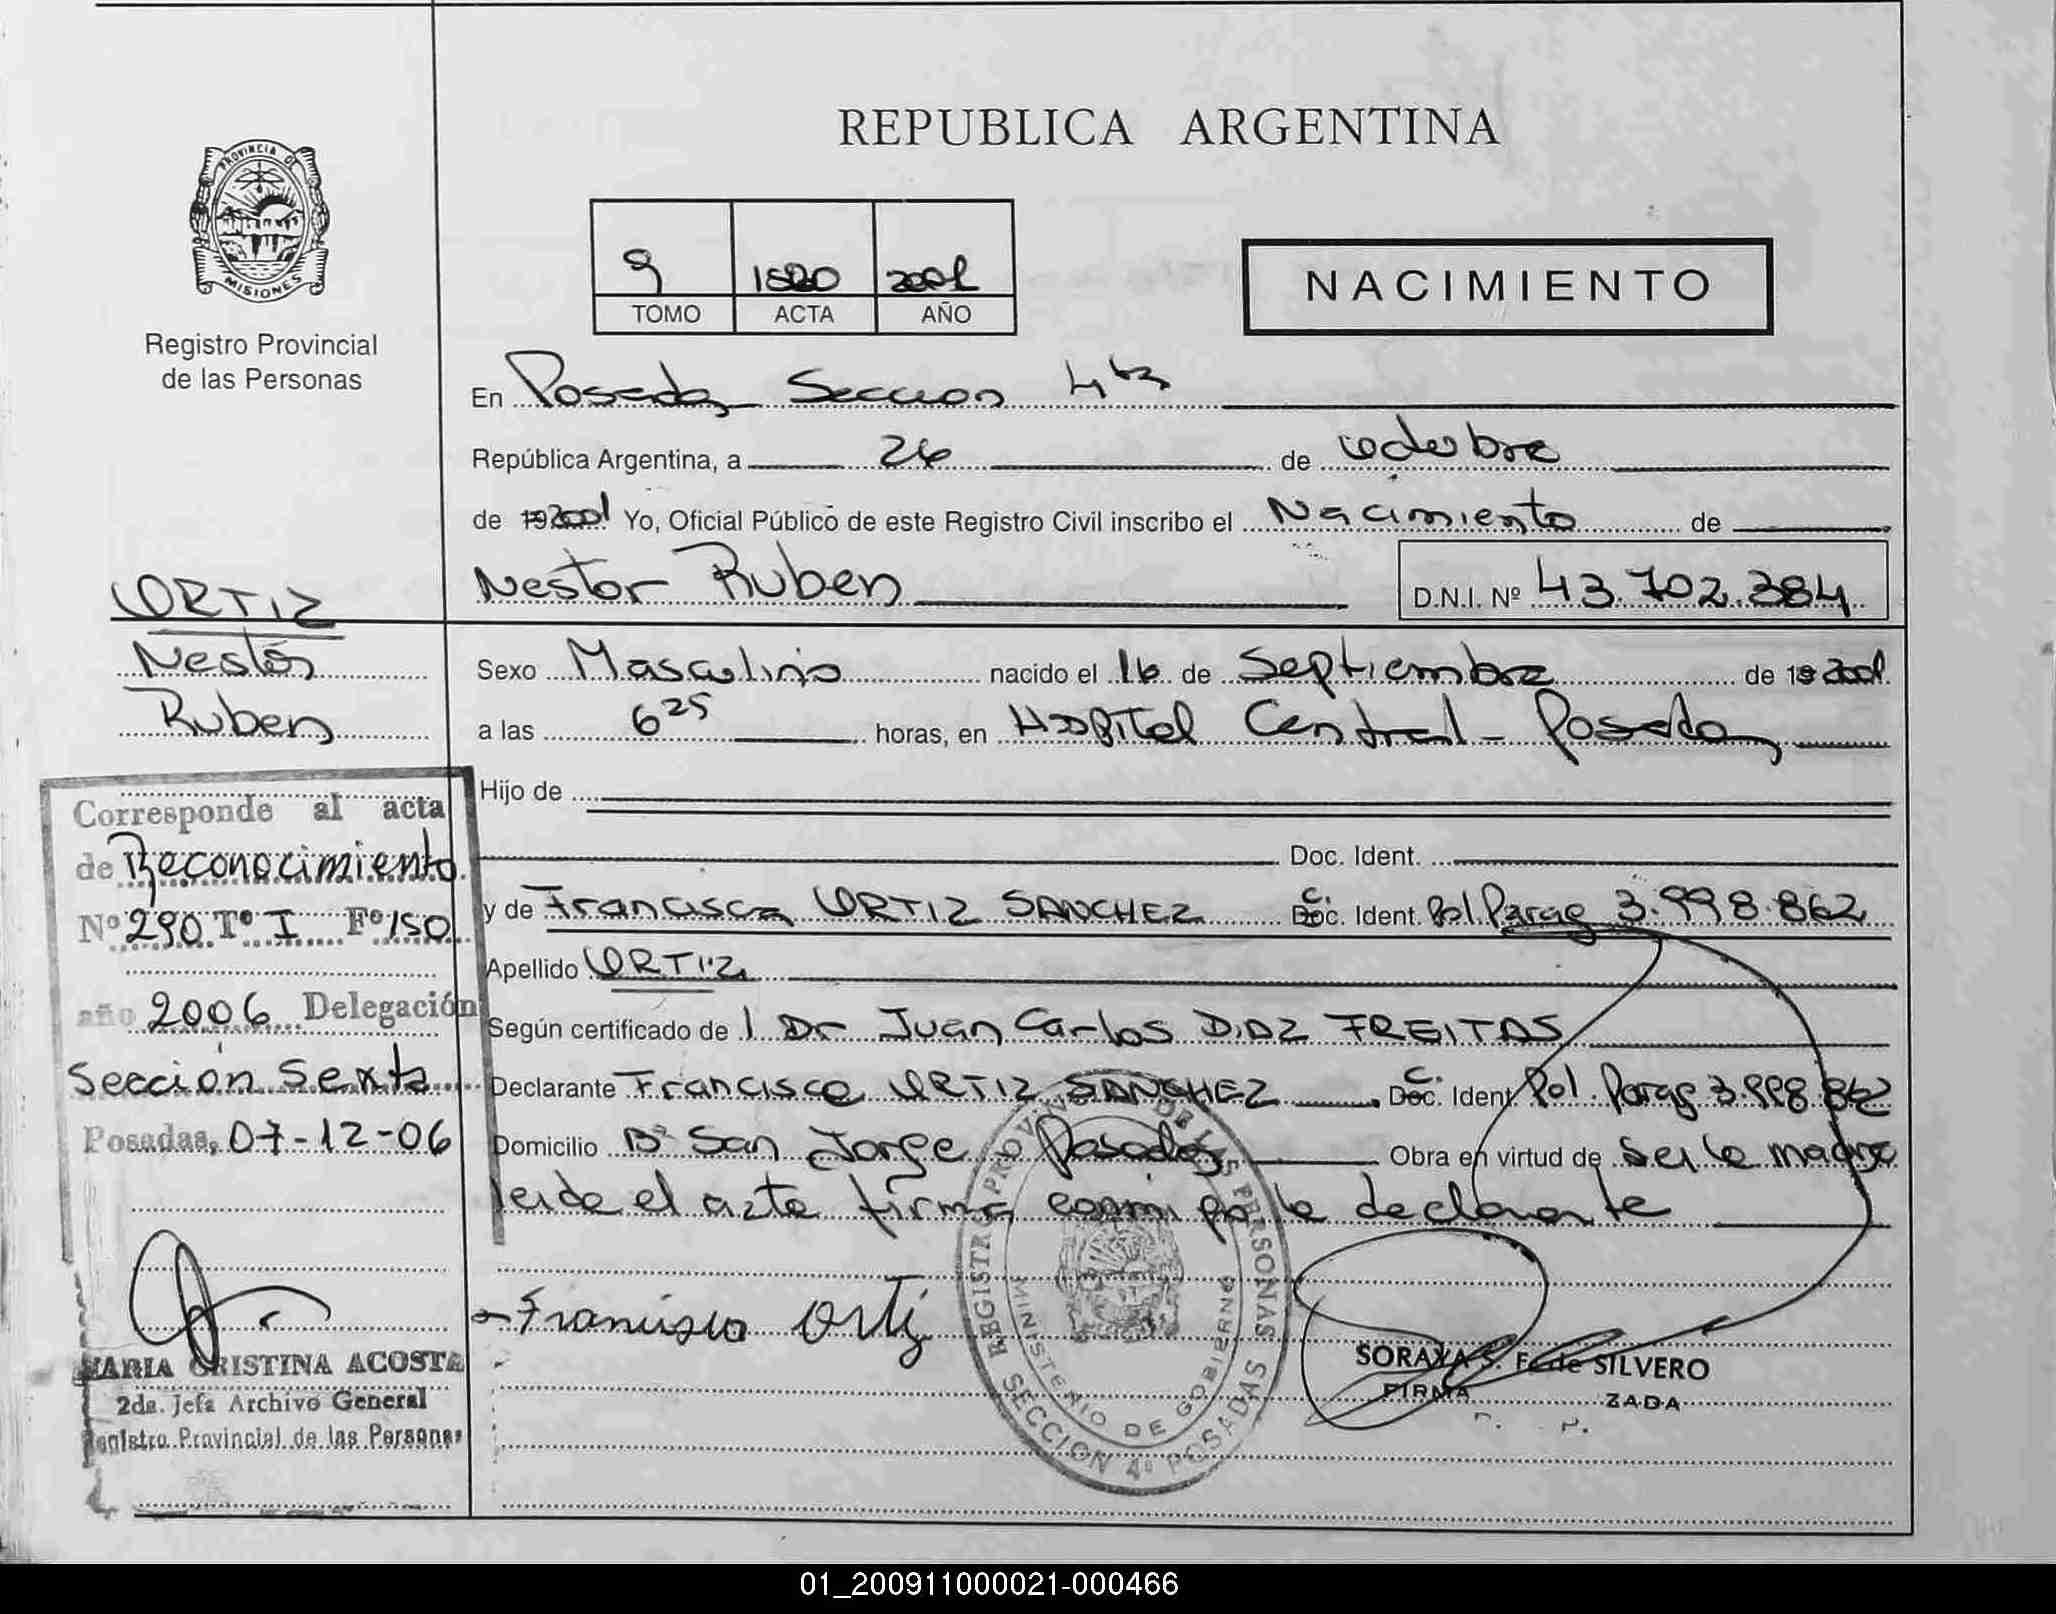 REPUBLICA ARGENTINA
PROVINCIA D
MISIONES
Registro Provincial
de las Personas
9 1520 2001
TOMO ACTA AÑO
NACIMIENTO
En Posadas Seccion 4ta
República Argentina, a 26 de octubre
de 19 2001 Yo, Oficial Público de este Registro Civil inscribo el Nacimiento de
Nestor Ruben D.N.I. Nº 43.702.384
ORTIZ
Nestor
Ruben
Sexo Masculino nacido el 16 de Septiembre de 19 2001
a las 6 25 horas, en Hospital Central - Posadas
Hijo de
Doc. Ident.
y de Francisca ORTIZ SANCHEZ C. Doc. Ident. Pol Parag 3.998.862
Apellido ORTIZ
Según certificado de 1 Dr Juan Carlos DIAZ FREITAS
Declarante Francisca ORTIZ SANCHEZ C. Doc. Ident Pol. Parag 3.998.862
Domicilio Bº San Jorge Posadas Obra en virtud de ser la madre
leida el acta firma conmigo la declarante
Francisca Ortiz
SORAYA S. F. de SILVERO
FIRMA ZADA
REGISTRO PROVINCIAL DE LAS PERSONAS
MINISTERIO DE GOBIERNO
SECCION 4ª POSADAS
Corresponde al acta
de Reconocimiento
Nº 290 Tº I Fº 150
año 2006 Delegación
Sección Sexta
Posadas, 07-12-06
MARIA CRISTINA ACOSTA
2da. Jefa Archivo General
Registro Provincial de las Personas
01_200911000021-000466